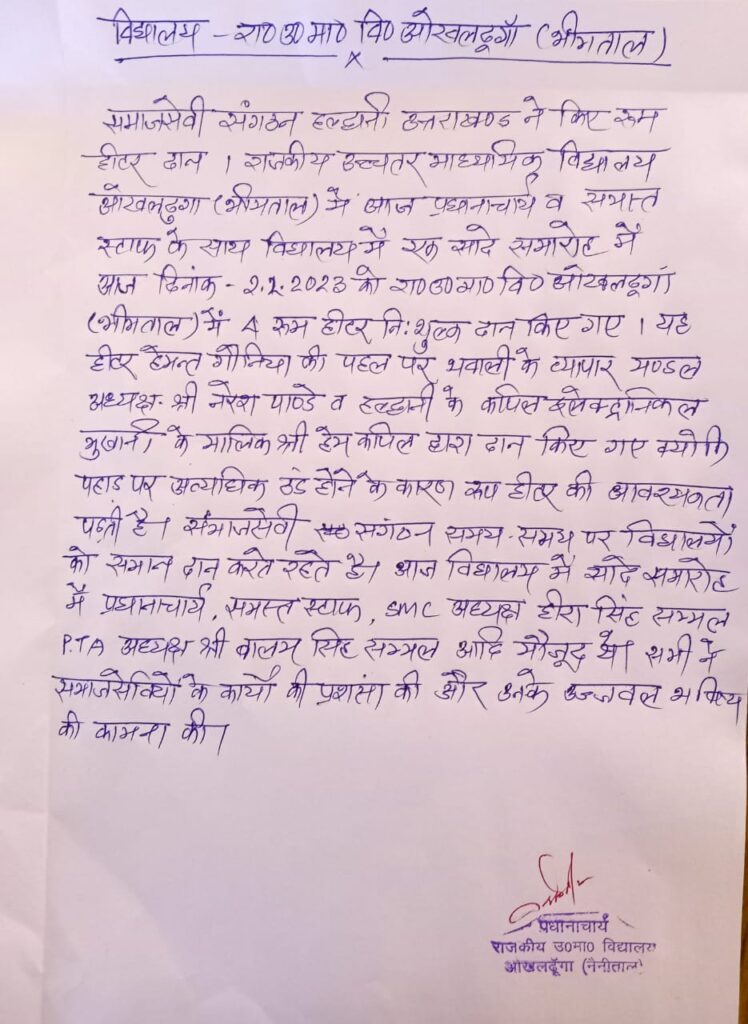 विद्यालय - रा० उ० मा० वि० ओखलढूगाँ (भीमताल)
समाजसेवी संगठन हल्द्वानी उत्तराखण्ड ने किए रूम
हीटर दान । राजकीय उच्चतर माध्यमिक विद्यालय
ओखलढुगा (भीमताल) में आज प्रधानाचार्य व समस्त
स्टाफ के साथ विद्यालय में एक सादे समारोह में
आज दिनांक - 2.2.2023 को रा० उ० मा० वि० ओखलढूगाँ
(भीमताल) में 4 रूम हीटर नि:शुल्क दान किए गए । यह
हीटर हेमन्त गौनिया की पहल पर भवाली के व्यापार मण्डल
अध्यक्ष श्री नरेश पाण्डे व हल्द्वानी के कपिल इलेक्ट्रानिकल
मुखानी के मालिक श्री हेम कपिल द्वारा दान किए गए क्योकि
पहाड पर अत्यधिक ठंड होने के कारण रूम हीटर की आवश्यकता
पड़ती है । समाजसेवी संगठन समय-समय पर विद्यालयों
को समान दान करते रहते है। आज विद्यालय में सादे समारोह
में प्रधानाचार्य, समस्त स्टाफ, SMC अध्यक्ष हीरा सिंह सम्मल
P.TA अध्यक्ष श्री बालम सिंह सम्मल आदि मौजूद थे। सभी ने
समाजसेवियों के कार्यो की प्रशंसा की और उनके उज्जवल भविष्य
की कामना की ।
प्रधानाचार्य
राजकीय उ०मा० विद्यालय
ओखलढूँगा (नैनीताल)